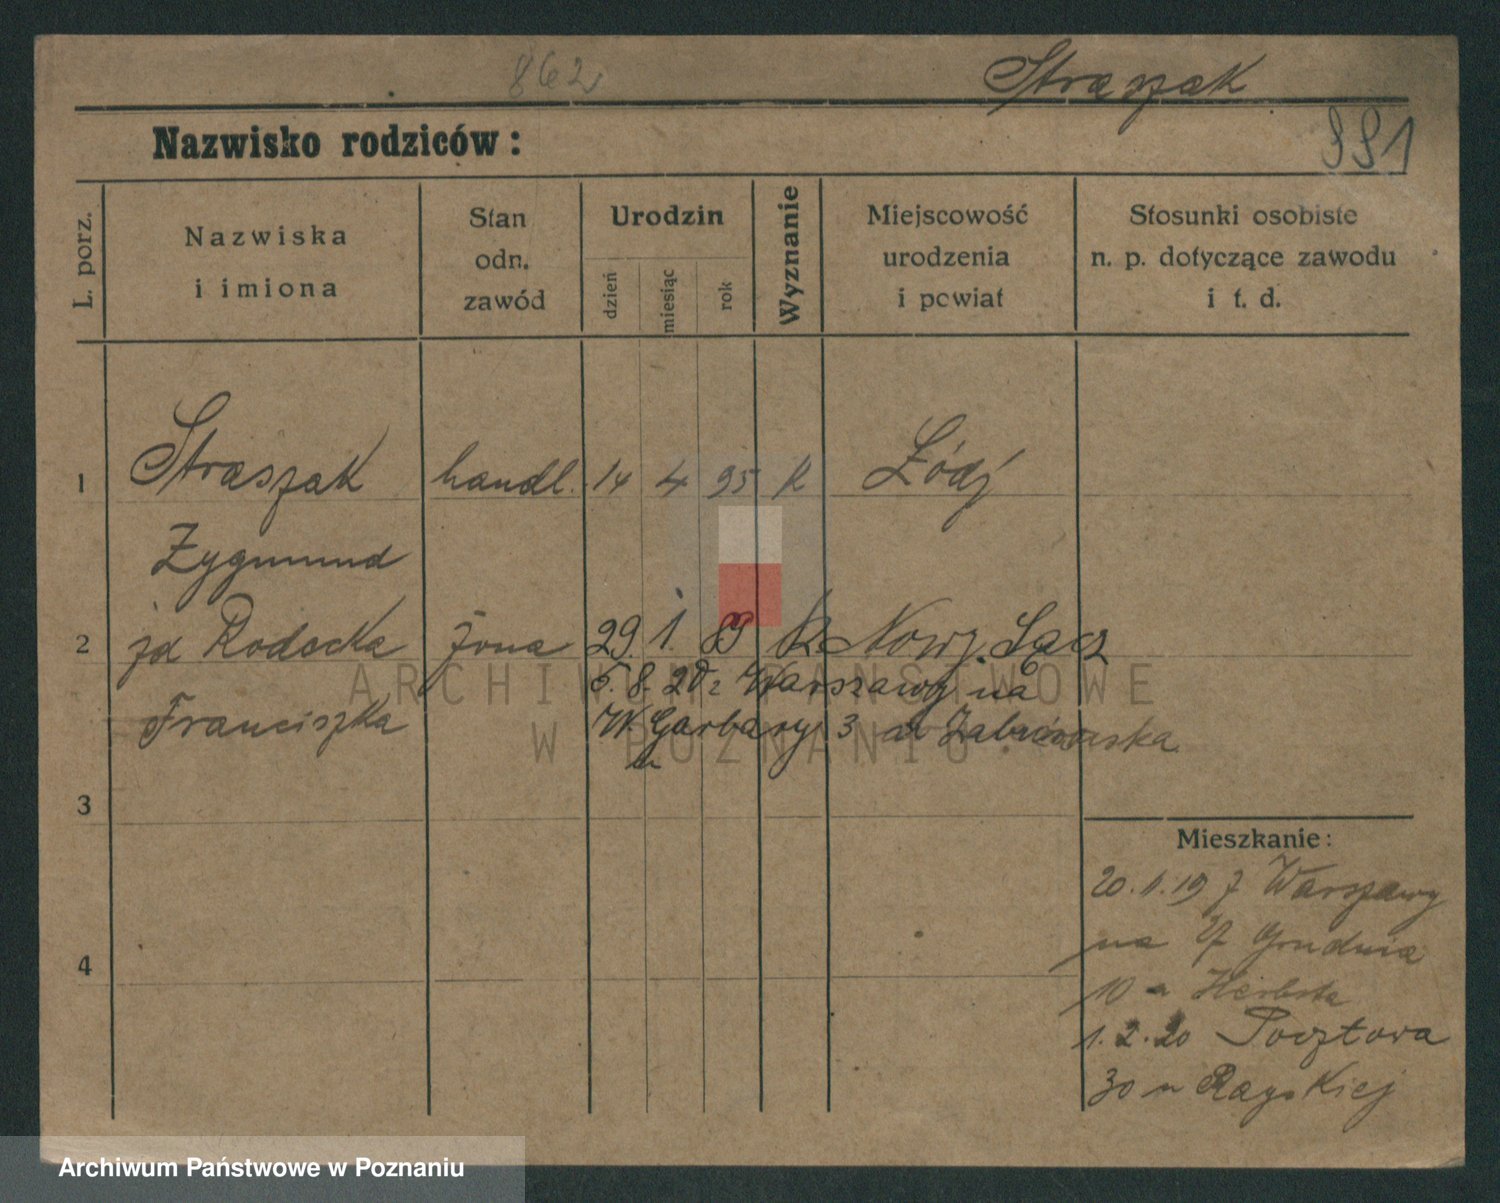 862
Straszak
991
Nazwisko rodziców:
L. porz.
Nazwiska i imiona
Stan odn. zawód
Urodzin
dzień
miesiąc
rok
Wyznanie
Miejscowość urodzenia i powiat
Stosunki osobiste n. p. dotyczące zawodu i t. d.
1 Straszak handl. 14 4 95 K Łódź
Zygmund
2 żd Rodocka żona 29. 1. 89 K Nowy Sącz
5. 8. 20 z Warszawy na
Franciszka W. Garbary 3 a
u
3
Mieszkanie:
20.1.19 z Warszawy
na 27 Grudnia
4
10 u Herbsta
1.2.20 Pocztowa
30 u Rayskiej
ARCHIWUM PAŃSTWOWE
W POZNANIU
Archiwum Państwowe w Poznaniu